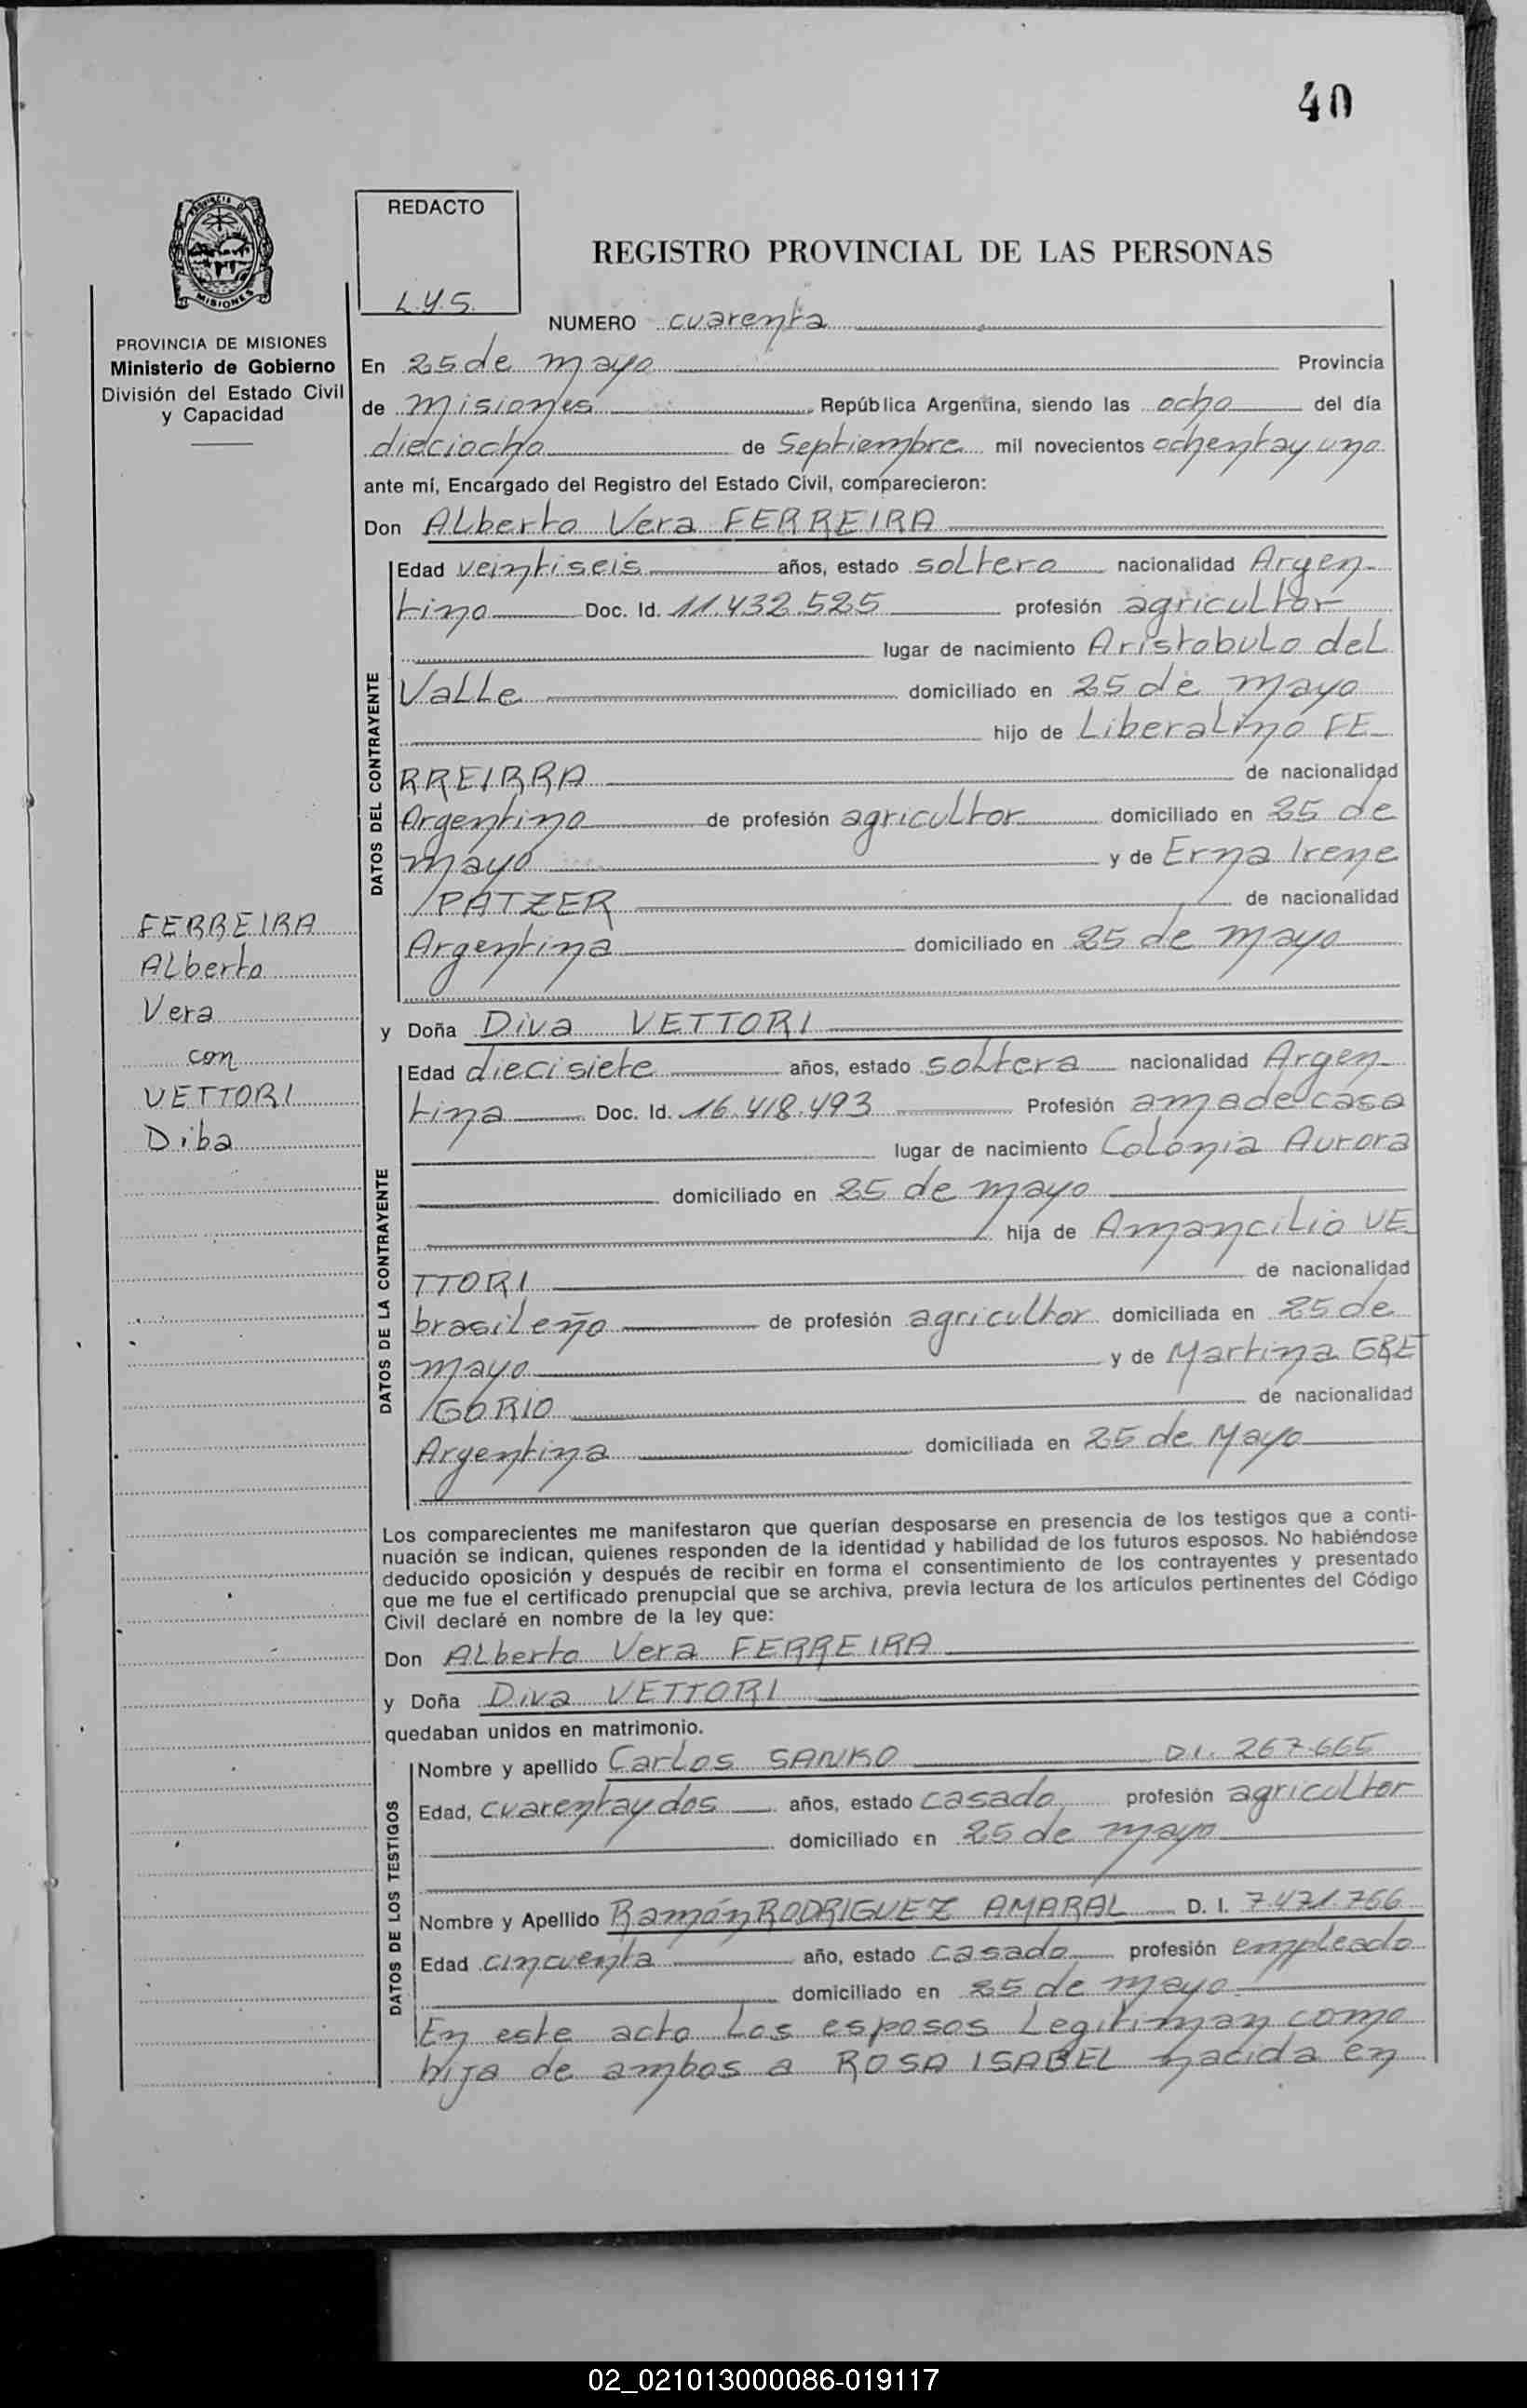 40
REDACTO
L.Y.S.
REGISTRO PROVINCIAL DE LAS PERSONAS
MISIONES
PROVINCIA DE MISIONES
Ministerio de Gobierno
División del Estado Civil
y Capacidad
NUMERO cuarenta
En 25 de mayo Provincia
de Misiones República Argentina, siendo las ocho del día
dieciocho de Septiembre mil novecientos ochentay uno
ante mí, Encargado del Registro del Estado Civil, comparecieron:
Don ALberto Vera FERREIRA
DATOS DEL CONTRAYENTE
Edad veintiseis años, estado soltero nacionalidad Argen-
tino Doc. Id. 11.432.525 profesión agricultor
lugar de nacimiento Aristobulo del
Valle domiciliado en 25 de mayo
hijo de Liberalino FE-
RREIRRA de nacionalidad
Argentino de profesión agricultor domiciliado en 25 de
mayo y de Erna Irene
PATZER de nacionalidad
Argentina domiciliado en 25 de mayo
FERREIRA
Alberto
Vera
con
VETTORI
Diba
y Doña Diva VETTORI
DATOS DE LA CONTRAYENTE
Edad diecisiete años, estado soltera nacionalidad Argen-
tina Doc. Id. 16.418.493 Profesión ama de casa
lugar de nacimiento Colonia Aurora
domiciliado en 25 de mayo
hija de Amancilio VE-
TTORI de nacionalidad
brasileño de profesión agricultor domiciliada en 25 de
mayo y de Martina GRE
/GORIO de nacionalidad
Argentina domiciliada en 25 de Mayo
Los comparecientes me manifestaron que querían desposarse en presencia de los testigos que a conti-
nuación se indican, quienes responden de la identidad y habilidad de los futuros esposos. No habiéndose
deducido oposición y después de recibir en forma el consentimiento de los contrayentes y presentado
que me fue el certificado prenupcial que se archiva, previa lectura de los artículos pertinentes del Código
Civil declaré en nombre de la ley que:
Don ALberto Vera FERREIRA
y Doña Diva VETTORI
quedaban unidos en matrimonio.
DATOS DE LOS TESTIGOS
Nombre y apellido Carlos SANKO D.I. 267.665
Edad, cuarentay dos años, estado casado profesión agricultor
domiciliado en 25 de mayo
Nombre y Apellido Ramón RODRIGUEZ AMARAL D. I. 7.471.766
Edad cincuenta año, estado casado profesión empleado
domiciliado en 25 de mayo
En este acto los esposos Legitiman como
hija de ambos a ROSA ISABEL nacida en
02_021013000086-019117